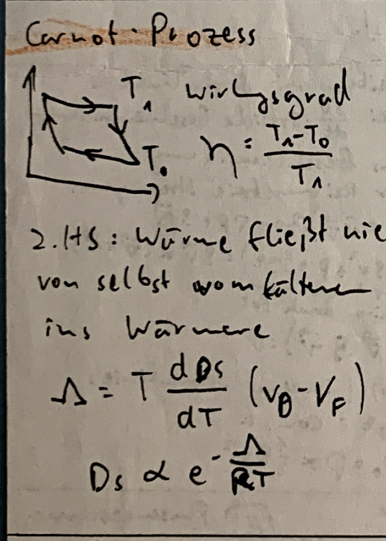 Carnot-Prozess
T₁ Wirkungsgrad
T₀ η = (T₁-T₀)/T₁
2. HS: Wärme fließt nie
von selbst vom kälteren
ins Wärmere
Λ = T dDs/dT (V_D - V_F)
Ds ∝ e^(-Λ/RT)